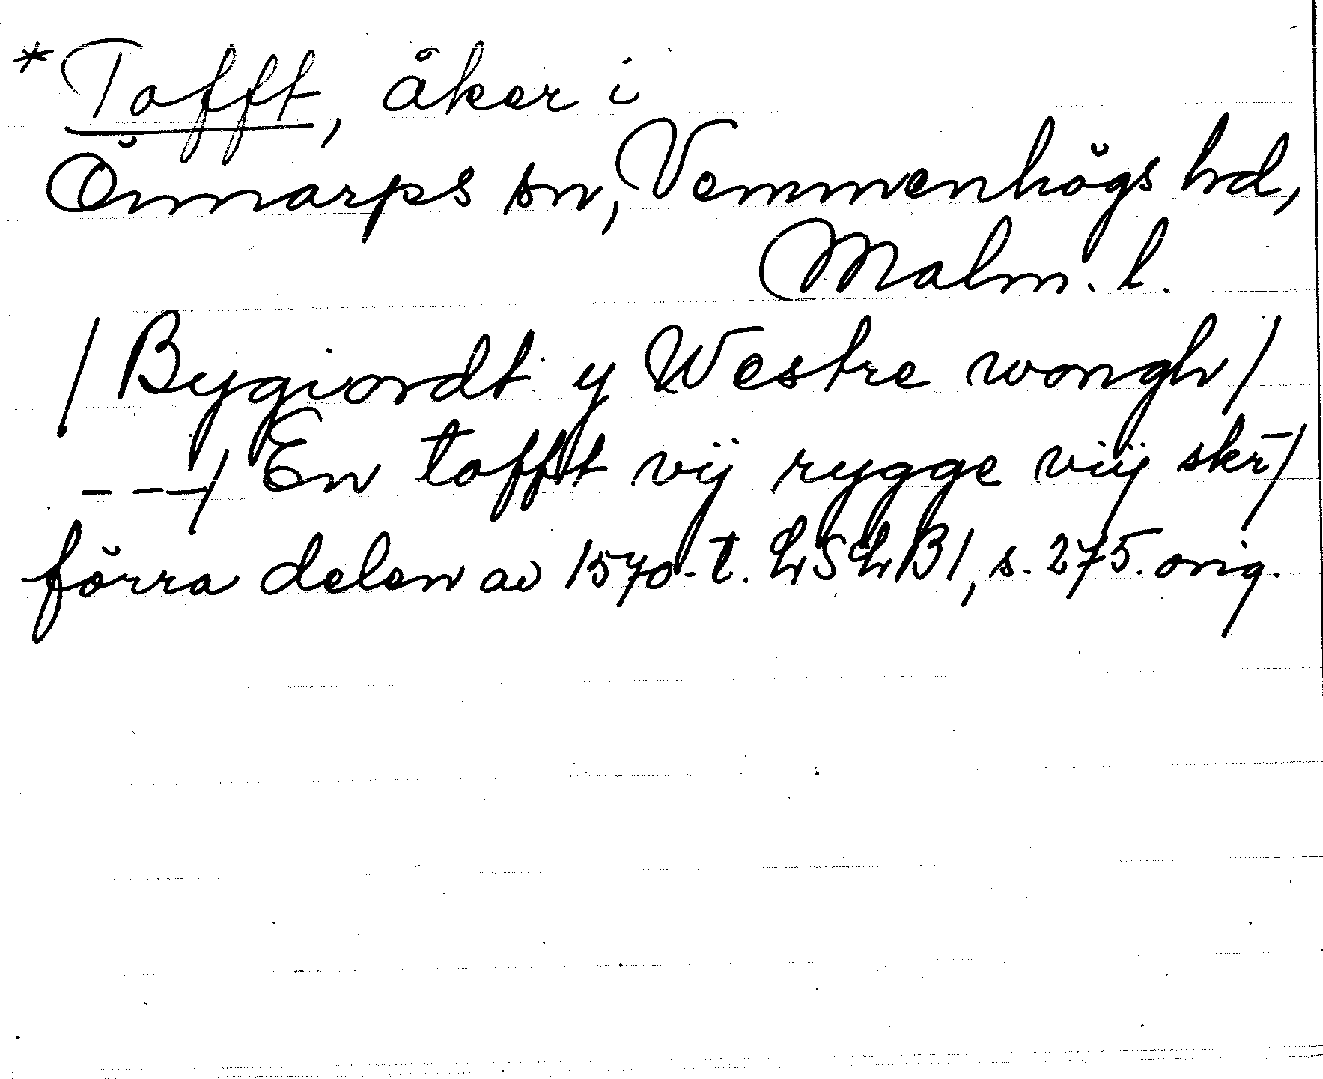 * Tofft, åker i
Önnarps sn, Vemmenhögs hd,
Malm. l.
/ Bygiordt y Westre wongh /
---/ En tofft vij rygge viij skr̄ /
förra delen av 1570-t. LSLB1, s. 275. orig.